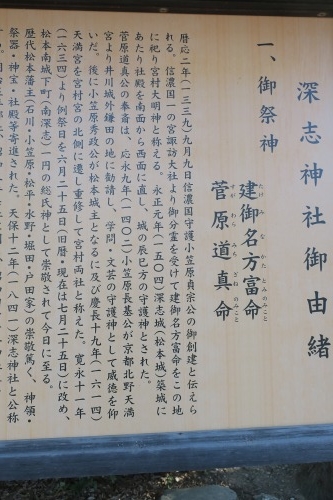 深志神社御由緒
一、御祭神
建御名方富命
たけみなかたとみのみこと
菅原道真命
すがわらみちざねのみこと
暦応二年(一三三九)九月九日信濃国守護小笠原貞宗公の御創建と伝えら
れる。信濃国一の宮諏訪大社より御分霊を受けて建御名方富命をこの地
に祀り宮村大明神と称える。永正元年(一五〇四)深志城(松本城)築城に
あたり社殿を南面から西面に直し、城の辰巳方の守護神とされた。
菅原道真公の奉斎は、応永九年(一四〇二)小笠原長基公が京都北野天満
宮より井川城外鎌田の地に勧請し、学問・文芸の守護神として威徳を仰
いだ。後に小笠原秀政公が松本城主となるに及び慶長十九年(一六一四)
天満宮を宮村宮の北側に遷し重修して宮村両社と称えた。寛永十一年
(一六三四)より例祭日を六月二十五日(旧暦・現在は七月二十五日)に改め、
松本南城下町(南深志)一円の総氏神として崇敬されて今日に至る。
歴代松本藩主(石川・小笠原・松平・水野・堀田・戸田家)の崇敬篤く、神領・
祭器・神宝・社殿等寄進された。天保十二年(一八四一)深志神社と公称